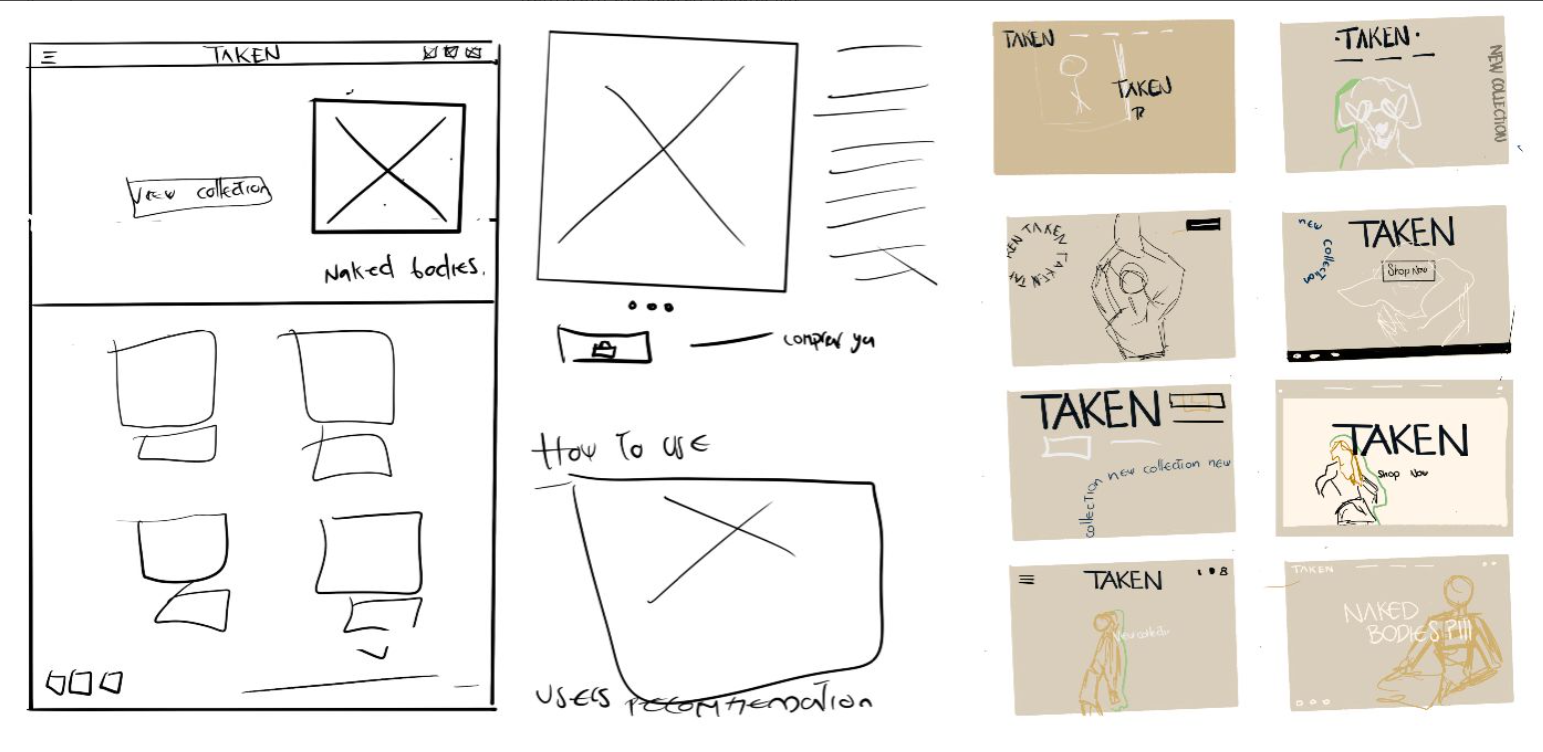 TAKEN
View collection
Naked bodies.
comprar ya
How To USE
USERS recommendation
TAKEN
TAKEN
·TAKEN·
NEW COLLECTION
TAKEN TAKEN TAKEN
new collection
TAKEN
Shop Now
TAKEN
collection new collection new
TAKEN
Shop Now
TAKEN
TAKEN
NAKED
BODIES